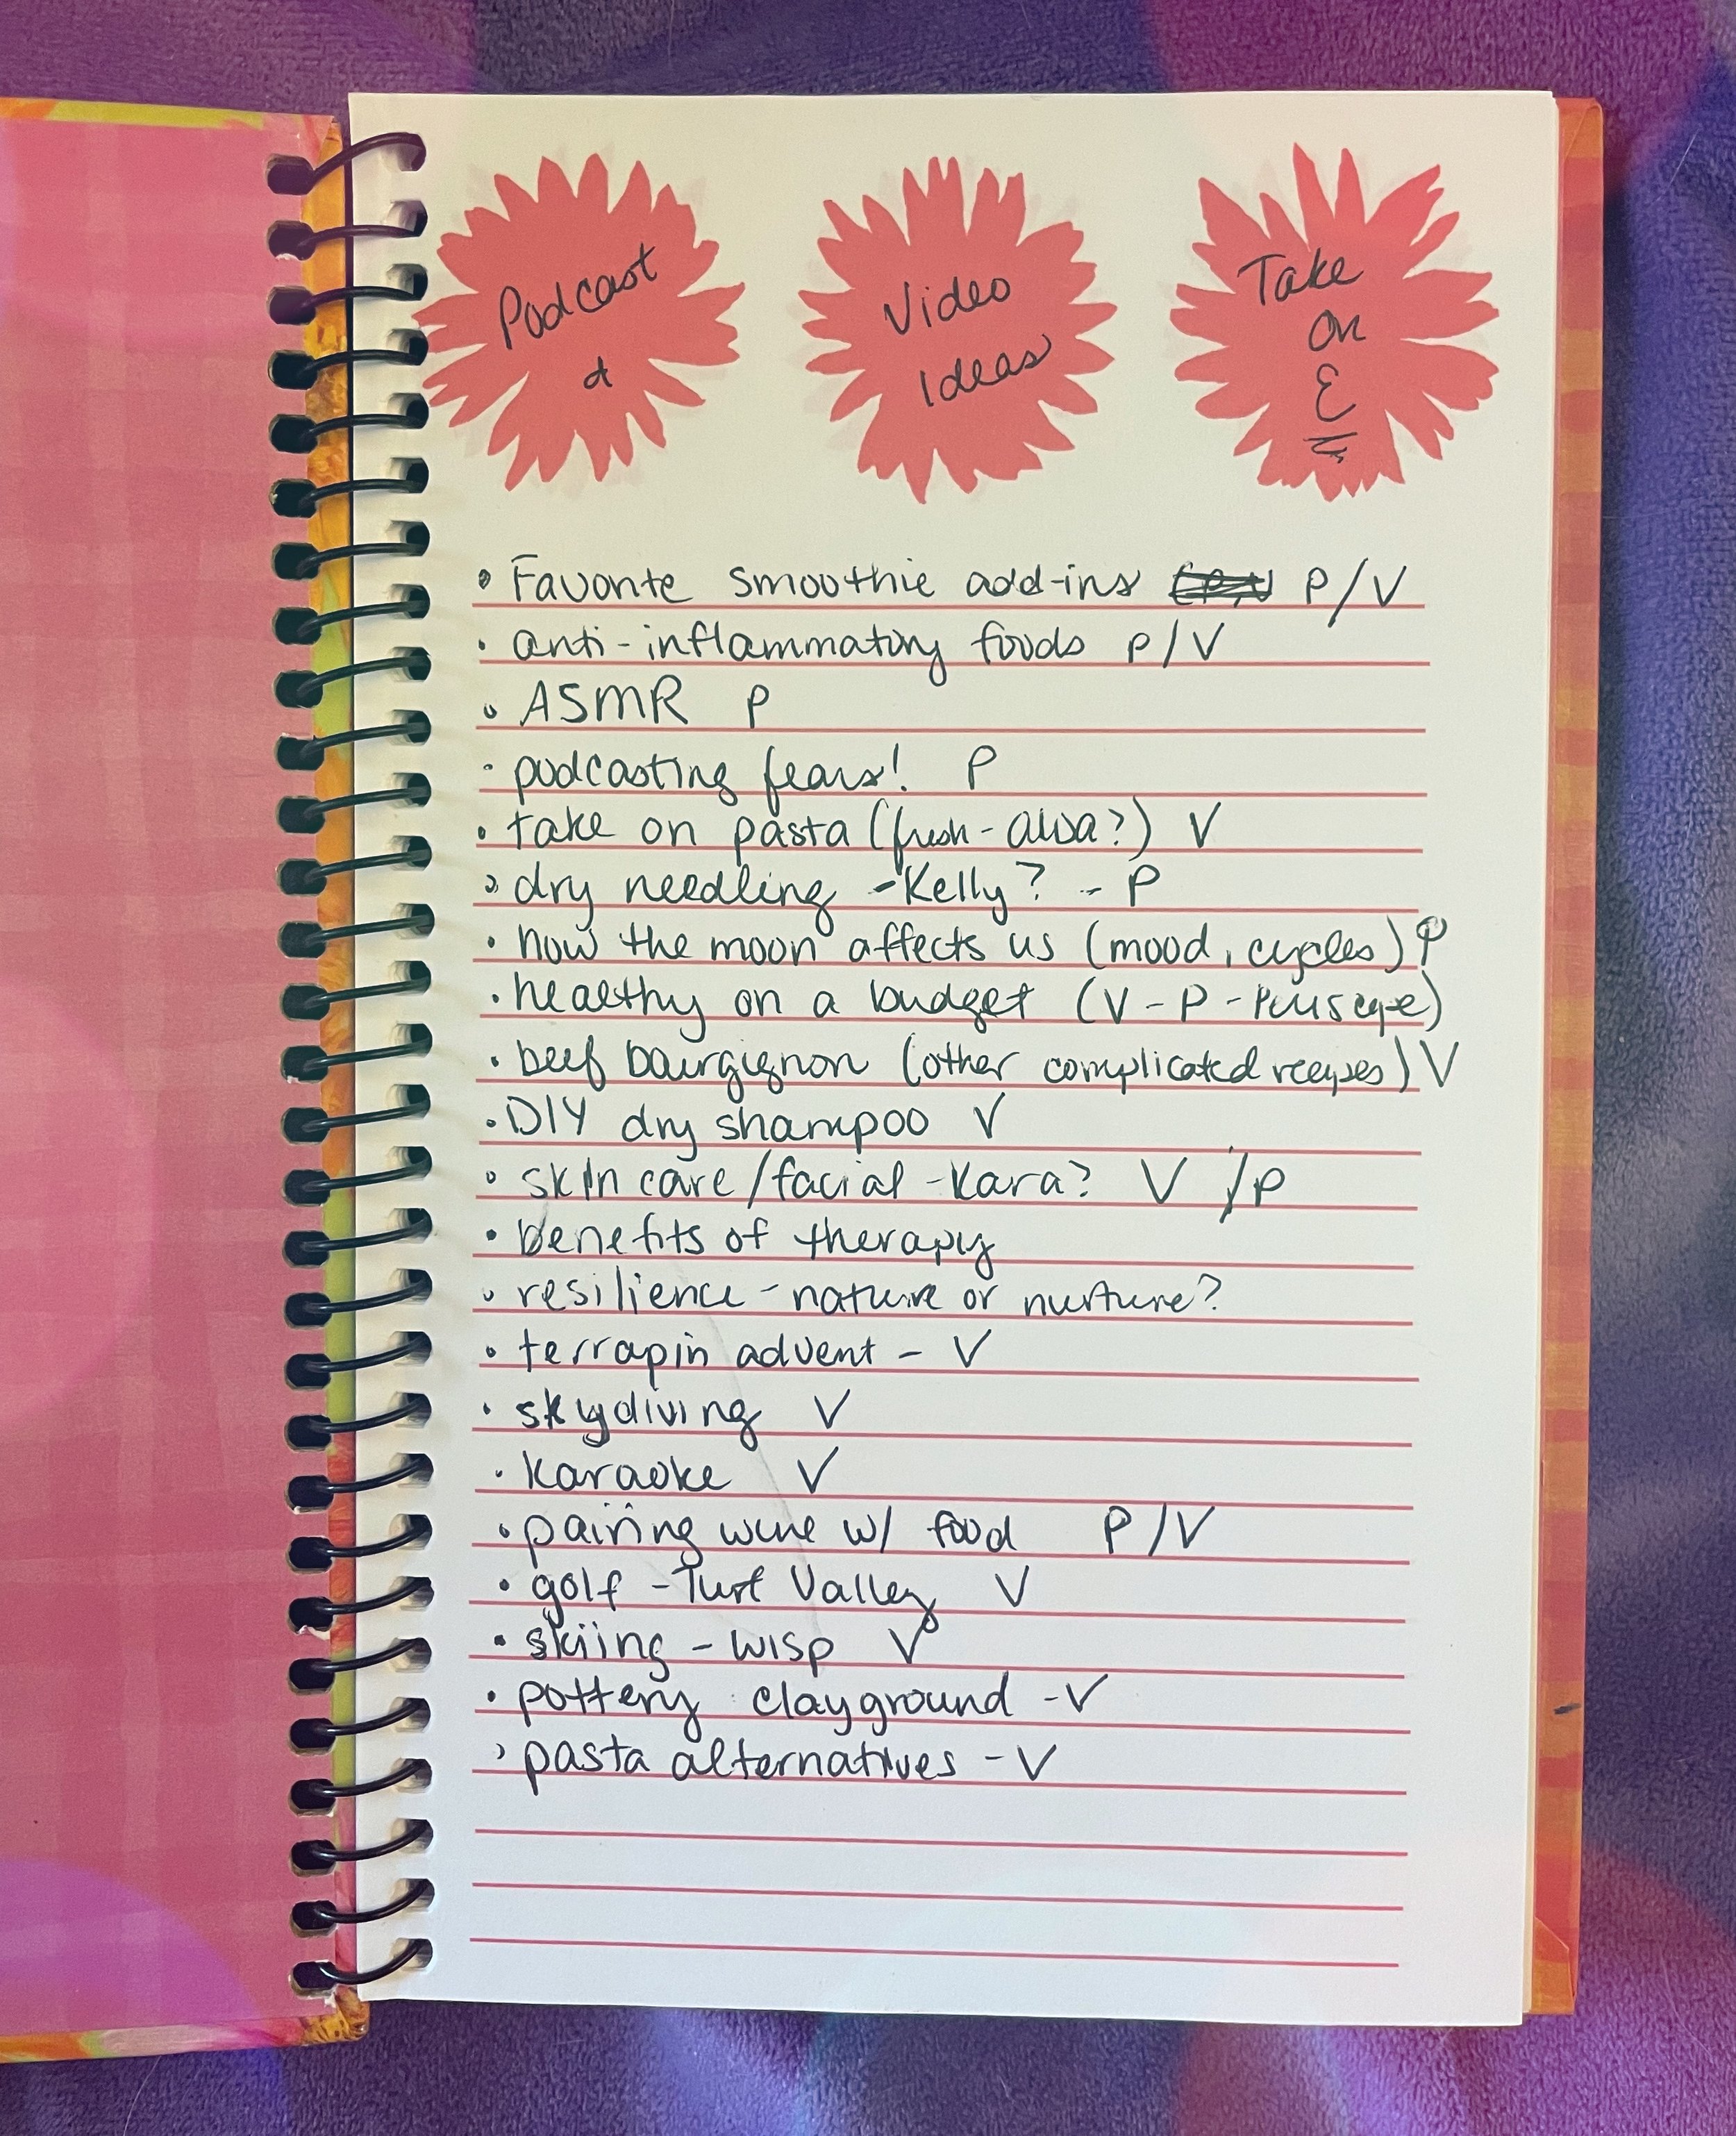 Podcast
&
Video
Ideas
Take
on
E
• Favorite smoothie add-ins P/V
• anti-inflammatory foods P/V
• ASMR P
• podcasting fears! P
• take on pasta (fresh - aldsa?) V
• dry needling - Kelly? - P
• how the moon affects us (mood, cycles) P
• healthy on a budget (V - P - Periscope)
• beef bourgignon (other complicated recipes) V
• DIY dry shampoo V
• skin care/facial - Kara? V /P
• benefits of therapy
• resilience - nature or nurture?
• terrapin advent - V
• skydiving V
• karaoke V
• pairing wine w/ food P/V
• golf - Turf Valley V
• skiing - wisp V
• pottery clayground - V
• pasta alternatives - V